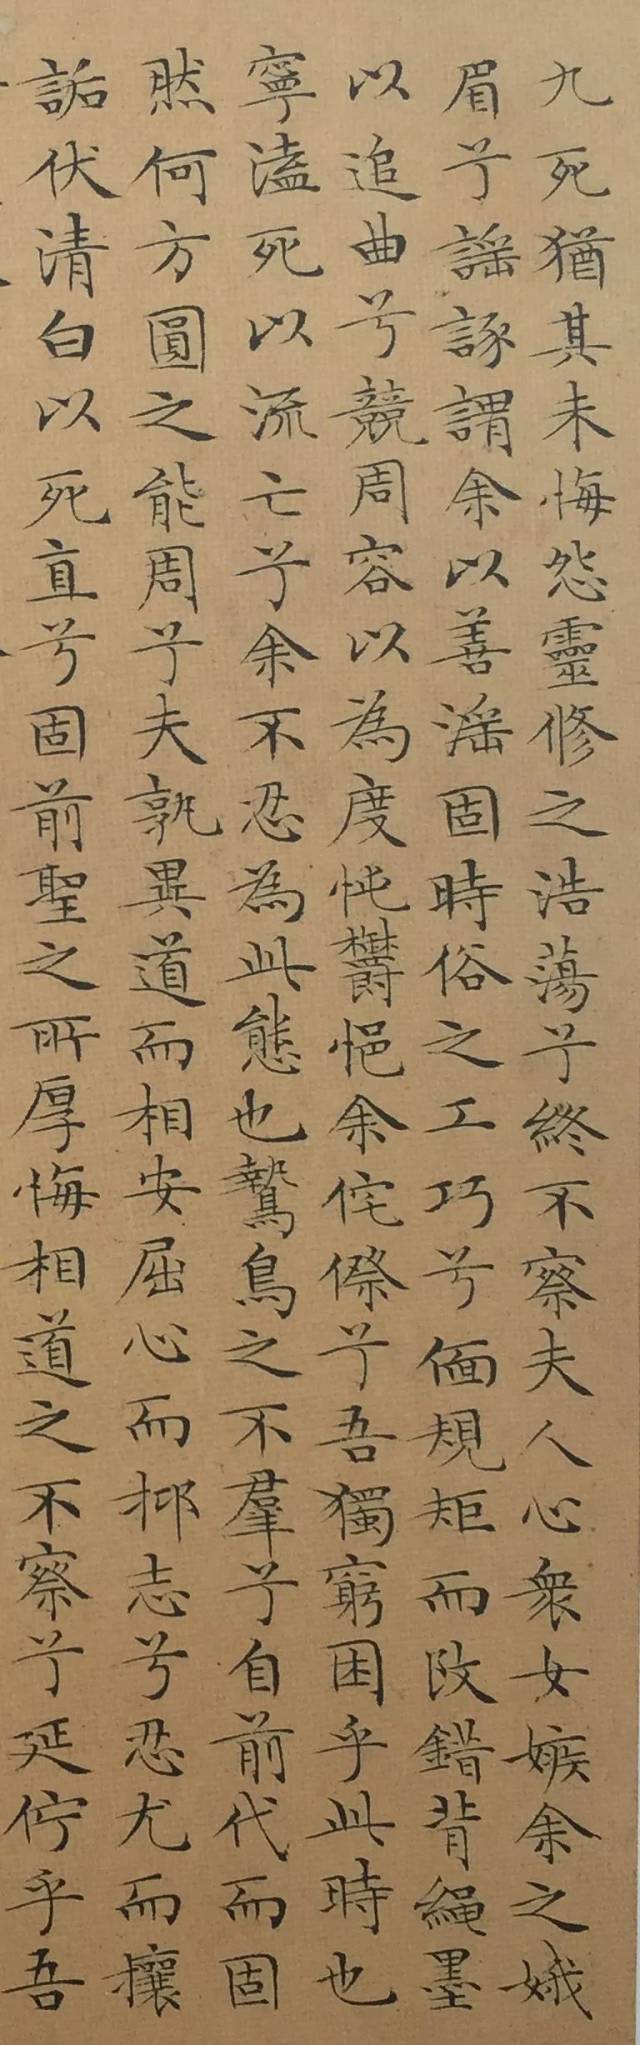 九死猶其未悔怨靈修之浩蕩兮終不察夫人心衆女嫉余之娥
眉兮謡諑謂余以善淫固時俗之工巧兮偭規矩而改錯背繩墨
以追曲兮競周容以為度忳欝悒余侘傺兮吾獨窮困乎此時也
寧溘死以流亡兮余不忍為此態也鷙鳥之不羣兮自前代而固
然何方圓之能周兮夫孰異道而相安屈心而抑志兮忍尤而攘
詬伏清白以死直兮固前聖之所厚悔相道之不察兮延佇乎吾